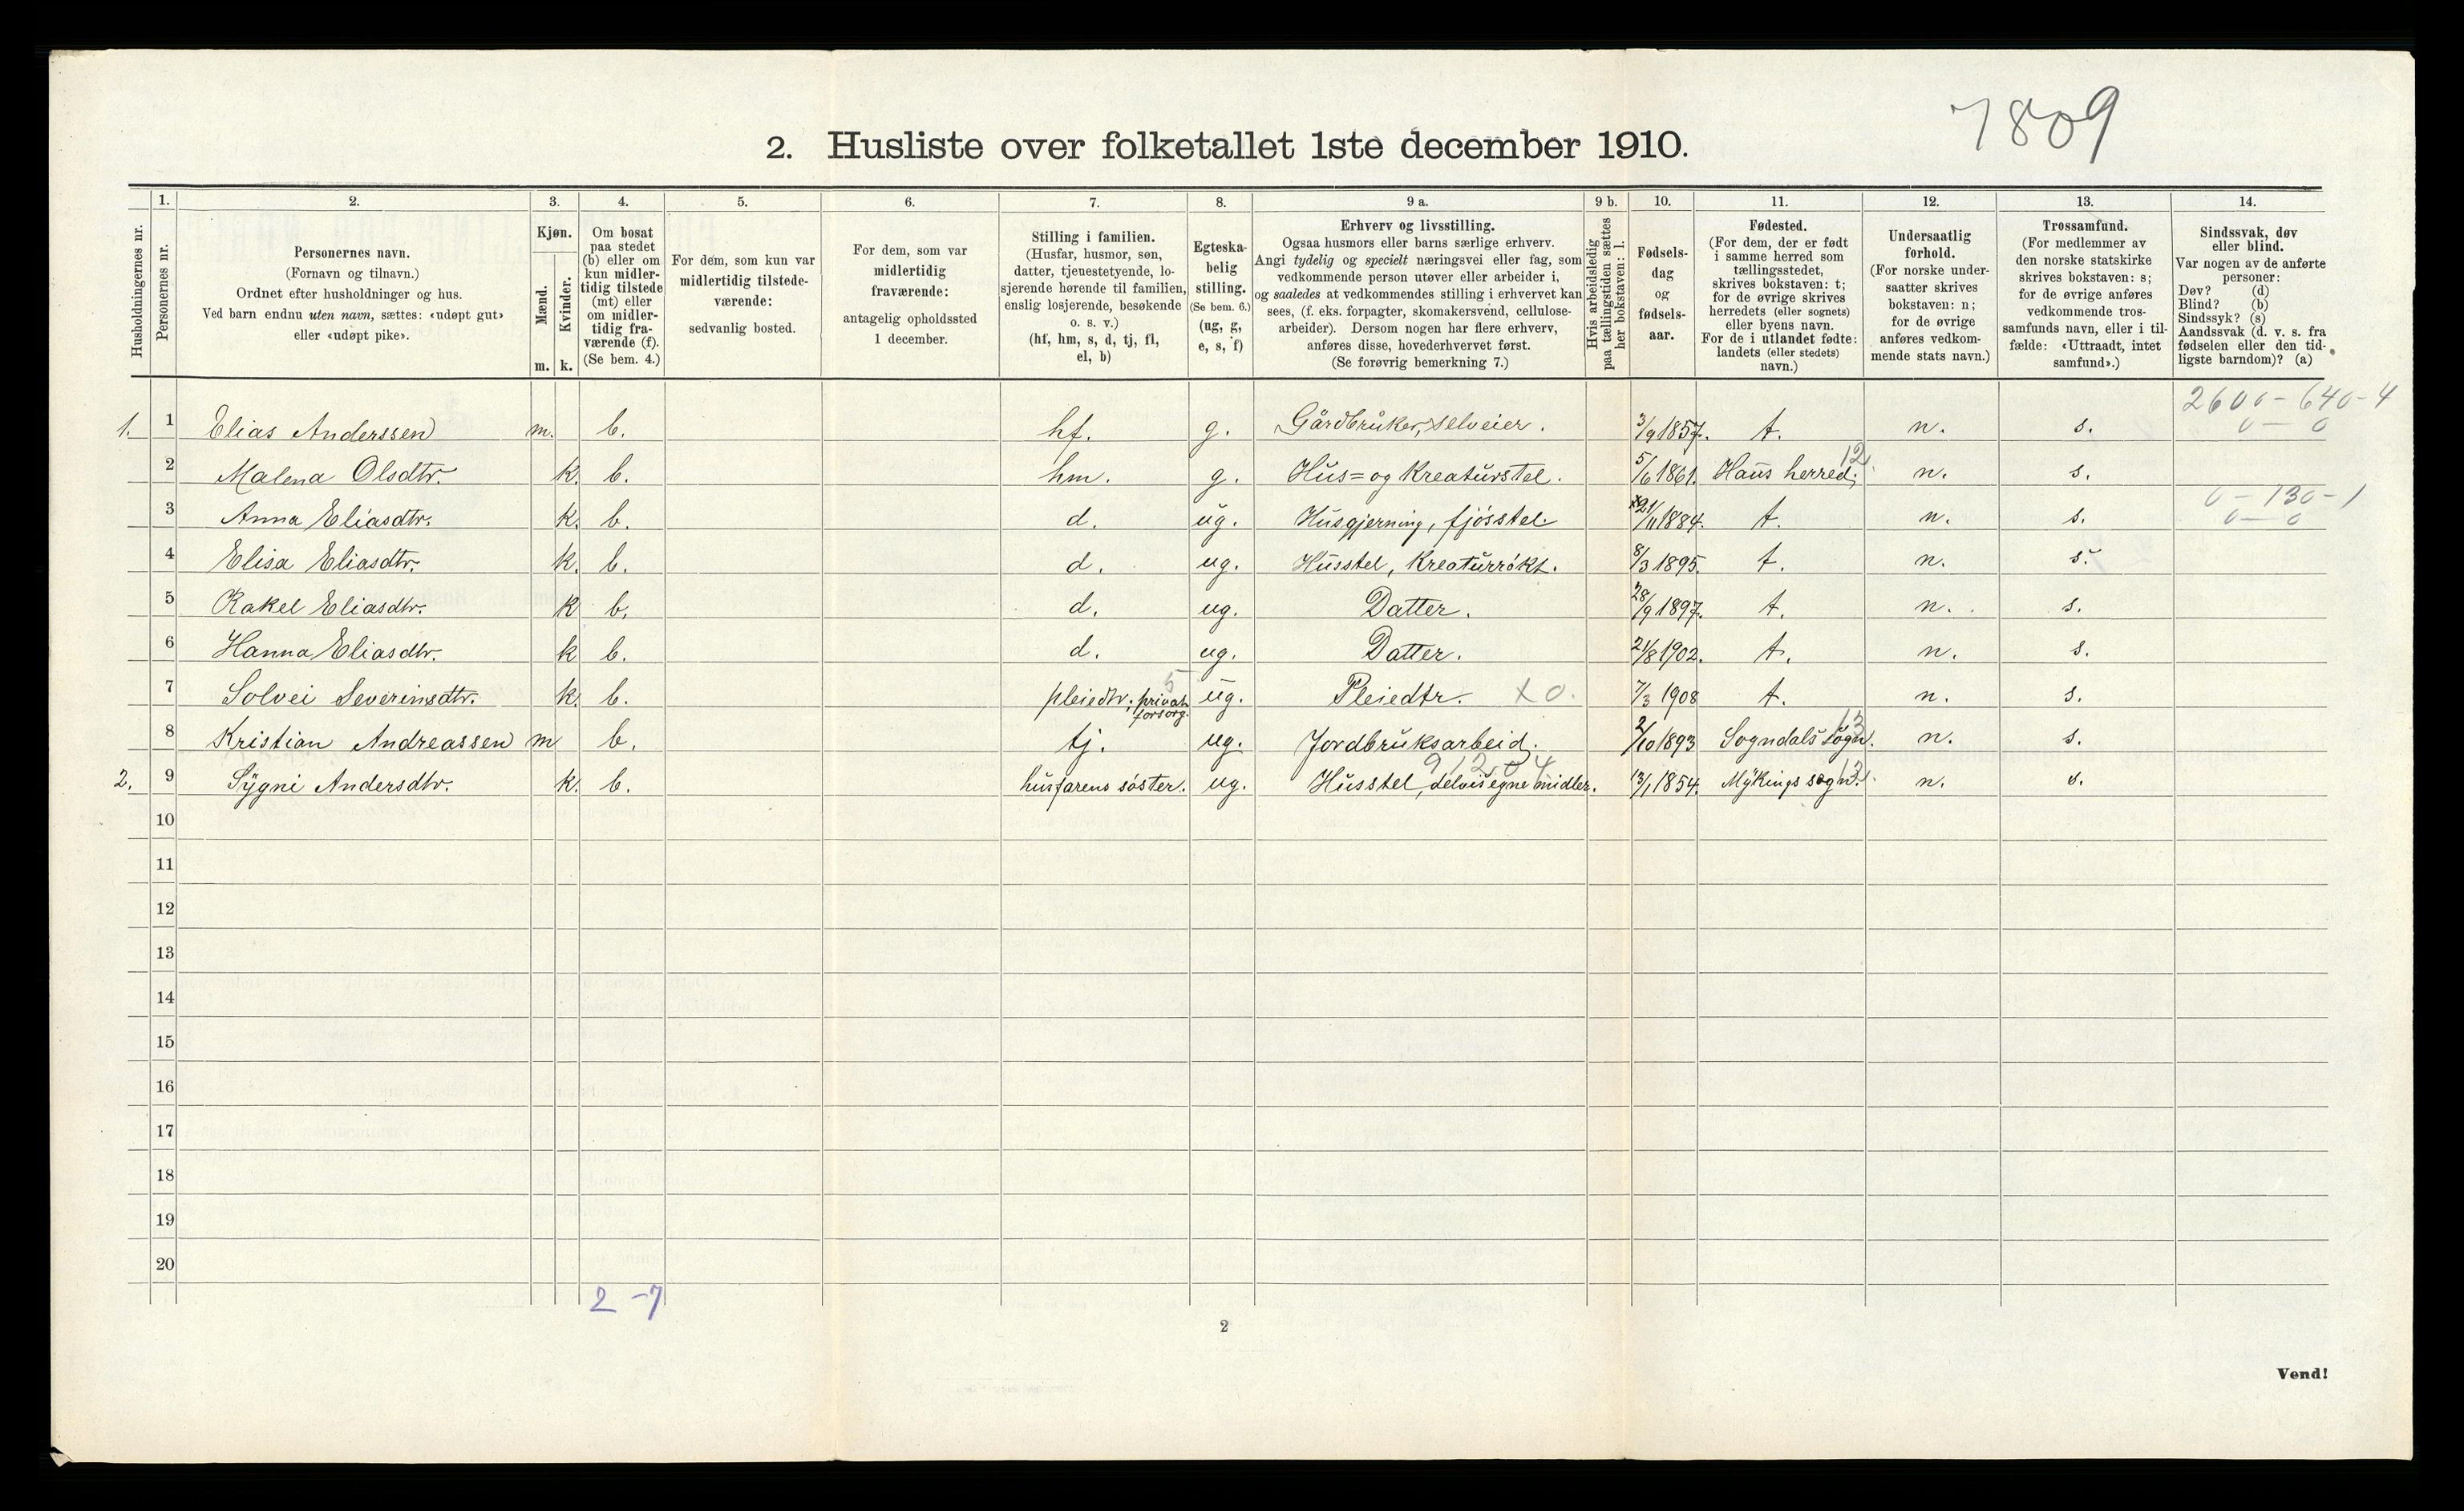 7809
2. Husliste over folketallet 1ste december 1910.
Husholdningernes nr.
1.
Personernes nr.
2.
Personernes navn.
(Fornavn og tilnavn.)
Ordnet efter husholdninger og hus.
Ved barn endnu uten navn, sættes: «udøpt gut»
eller «udøpt pike».
3.
Kjøn.
Mænd.
Kvinder.
m. k.
4.
Om bosat
paa stedet
(b) eller om
kun midler-
tidig tilstede
(mt) eller
om midler-
tidig fra-
værende (f).
(Se bem. 4.)
5.
For dem, som kun var
midlertidig tilstede-
værende:
sedvanlig bosted.
6.
For dem, som var
midlertidig
fraværende:
antagelig opholdssted
1 december.
7.
Stilling i familien.
(Husfar, husmor, søn,
datter, tjenestetyende, lo-
sjerende hørende til familien,
enslig losjerende, besøkende
o. s. v.)
(hf, hm, s, d, tj, fl,
el, b)
8.
Egteska-
belig
stilling.
(Se bem. 6.)
(ug, g,
e, s, f)
9 a.
Erhverv og livsstilling.
Ogsaa husmors eller barns særlige erhverv.
Angi tydelig og specielt næringsvei eller fag, som
vedkommende person utøver eller arbeider i,
og saaledes at vedkommendes stilling i erhvervet kan
sees, (f. eks. forpagter, skomakersvend, cellulose-
arbeider). Dersom nogen har flere erhverv,
anføres disse, hovederhvervet først.
(Se forøvrig bemerkning 7.)
9 b.
Hvis arbeidsledig
paa tællingstiden sættes
her bokstaven: l.
10.
Fødsels-
dag
og
fødsels-
aar.
11.
Fødested.
(For dem, der er født
i samme herred som
tællingsstedet,
skrives bokstaven: t;
for de øvrige skrives
herredets (eller sognets)
eller byens navn.
For de i utlandet fødte:
landets (eller stedets)
navn.)
12.
Undersaatlig
forhold.
(For norske under-
saatter skrives
bokstaven: n;
for de øvrige
anføres vedkom-
mende stats navn.)
13.
Trossamfund.
(For medlemmer av
den norske statskirke
skrives bokstaven: s;
for de øvrige anføres
vedkommende tros-
samfunds navn, eller i til-
fælde: «Uttraadt, intet
samfund».)
14.
Sindssvak, døv
eller blind.
Var nogen av de anførte
personer:
Døv? (d)
Blind? (b)
Sindssyk? (s)
Aandssvak (d. v. s. fra
fødselen eller den tid-
ligste barndom)? (a)
2600 - 640 - 4
1. 1 Elias Anderssen m. b. hf. g. Gårdbruker, selveier. 3/9 1857. t. n. s. 0 - 0
12
2 Malena Olsdtr. k. b. hm. g. Hus= og Kreaturstel. 5/6 1861. Haus herred. n. s.
0 - 130 - 1
3 Anna Eliasdtr. k. b. d. ug. Husgjerning, fjósstel. 21/11 1884. t. n. s. 0 - 0
4 Elisa Eliasdtr. k. b. d. ug. Husstel, Kreaturrókt. 8/3 1895. t. n. s.
5 Rakel Eliasdtr. k b. d. ug. Datter. 28/9 1897. t. n. s.
6 Hanna Eliasdtr. k b. d. ug. Datter. 21/8 1902. t. n. s.
5
7 Solvei Severinsdtr. k. b. pleiedtr; privat forsorg. ug. Pleiedtr. x 0. 7/3 1908 t. n. s.
13
8 Kristian Andreassen m b. tj. ug. Jordbruksarbeid. 2/10 1893 Sogndals sogn. n. s.
2. 9 Sygni Andersdtr. k. b. husfarens sóster. ug. Husstel, delvis egne midler. 13/1 1854. Mykings sogn. n. s.
10
11
12
13
14
15
16
17
18
19
20
2 - 7
2
Vend!